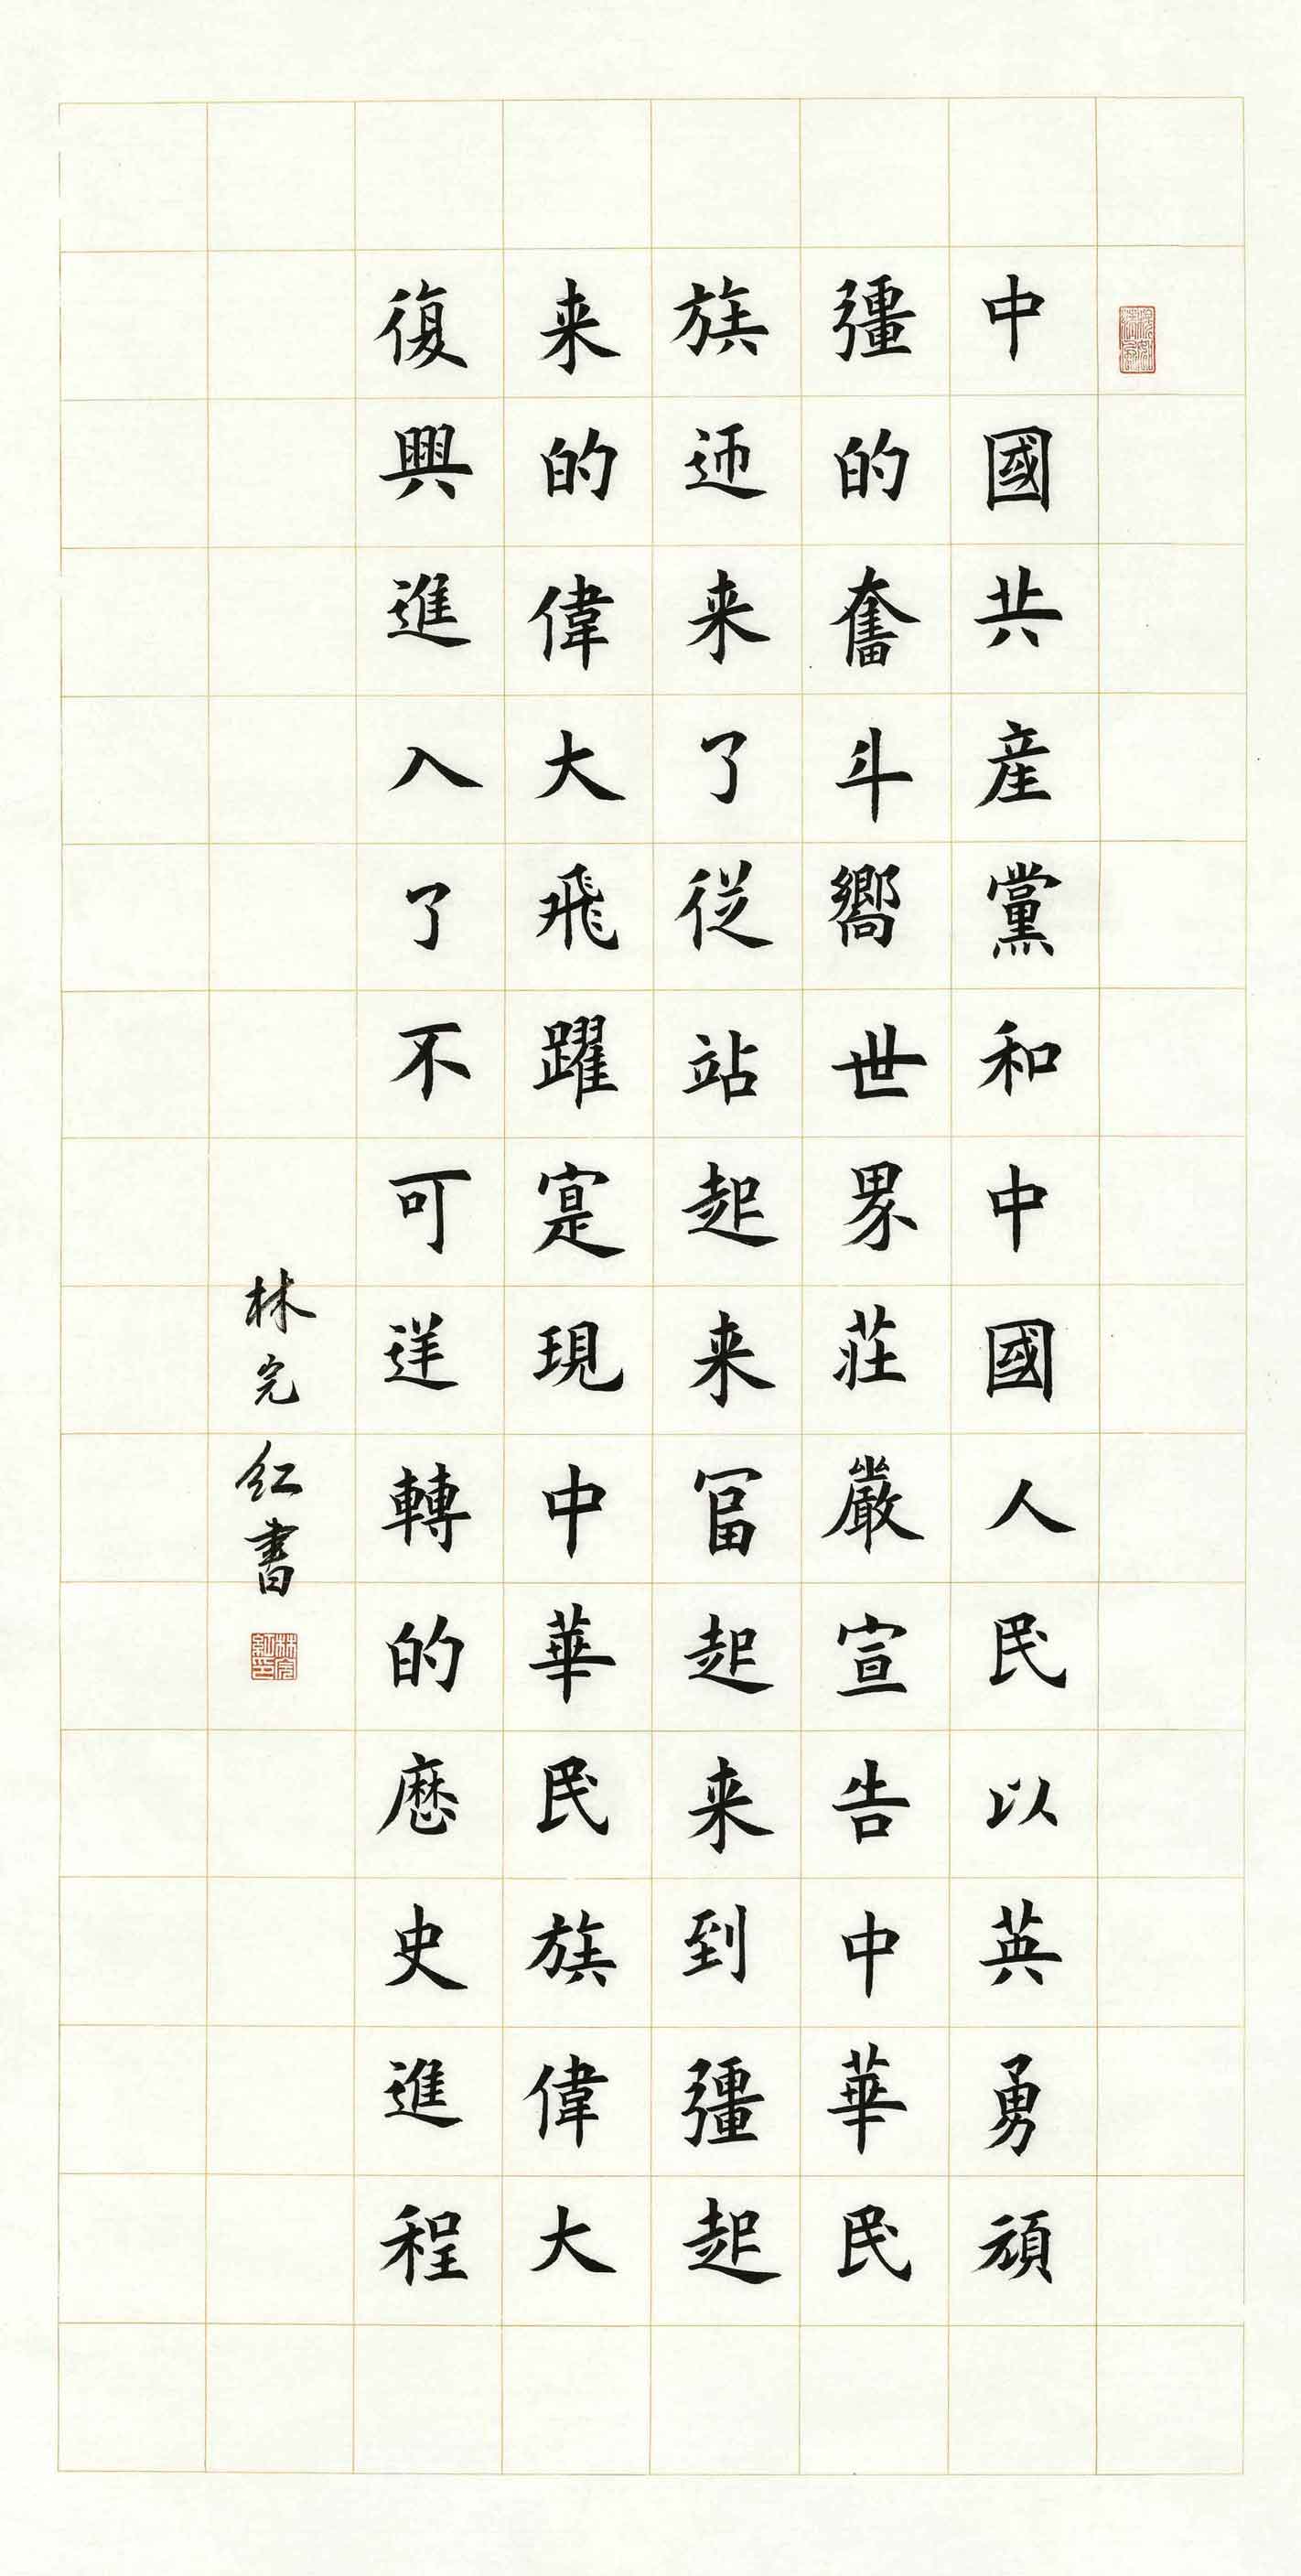 中國共産黨和中國人民以英勇頑
彊的奮斗嚮世界莊嚴宣告中華民
族迊来了従站起来冨起来到彊起
来的偉大飛躍寔現中華民族偉大
復興進入了不可逆轉的歴史進程
林完紅書
林完紅印